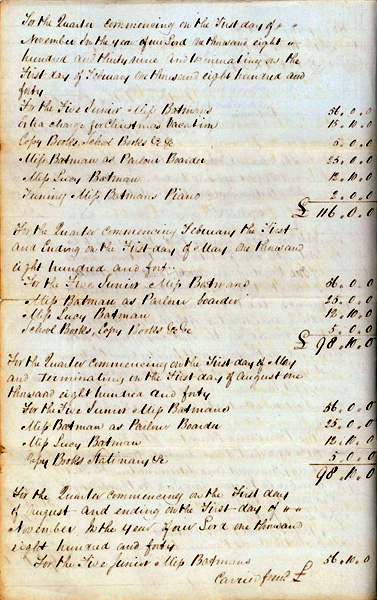 For the Quarter commencing on the First day of
November In the year of our Lord One thousand eight
hundred and thirty nine and terminating on the
First day of February One thousand eight hundred and
forty
For the Five Junior Miss Batmans 56. 0. 0
Extra Charge for Christmas Vacation 15. 10. 0
Copy Books, School Books &c &c 5. 0. 0
Miss Batman as Parlour Boarder 25. 0. 0
Miss Lucy Batman 12. 10. 0
Tuning Miss Batmans Piano 2. 0. 0
£ 116. 0. 0
For the Quarter commencing February the First
and Ending on the First day of May One thousand
eight hundred and forty
For the Five Junior Miss Batmans 56. 0. 0
Miss Batman as Parlour boarder 25. 0. 0
Miss Lucy Batman 12. 10. 0
School Books, Copy Books &c &c 5. 0. 0
£ 98. 10. 0
For the Quarter commencing on the First day of May
and terminating on the First day of August one
thousand eight hundred and forty
For the Five Junior Miss Batmans 56. 0. 0
Miss Batman as Parlour Boarder 25. 0. 0
Miss Lucy Batman 12. 10. 0
Copy Books Stationary &c 5. 0. 0
98. 10. 0
For the Quarter commencing on the First day
of August and ending on the First day of
November In the year of our Lord one thousand
eight hundred and forty
For the Five Junior Miss Batmans 56. 10. 0
Carried £